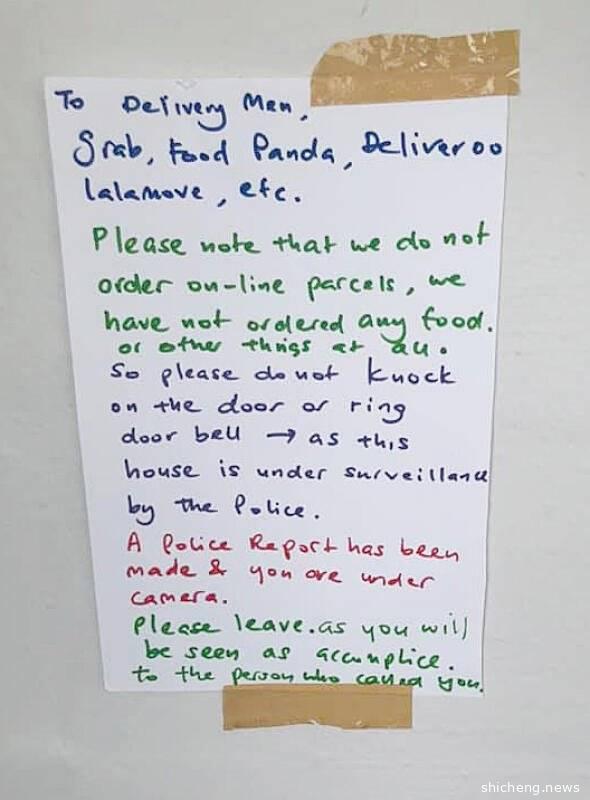 To Delivery Men,
Grab, Food Panda, Deliveroo
lalamove, etc.
Please note that we do not
order on-line parcels, we
have not ordered any food.
or other things at all.
So please do not knock
on the door or ring
door bell → as this
house is under surveillance
by the Police.
A Police Report has been
made & you are under
camera.
Please leave. as you will
be seen as accomplice.
to the person who called you.
shicheng.news